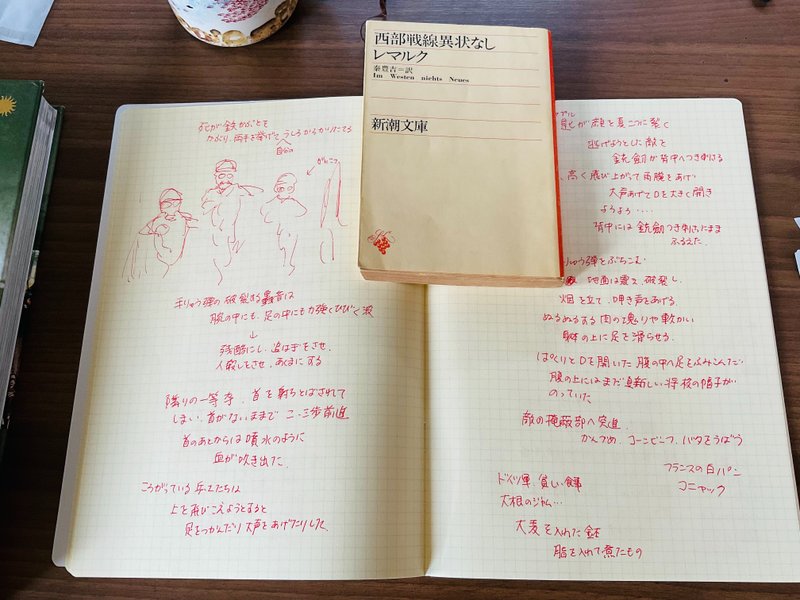 西部戦線異状なし
レマルク
秦豊吉=訳
Im Westen nichts Neues
新潮文庫
死が鉄かぶとを
かぶり、両手を挙げて うしろからかかりたてる
手りゅう弾の破裂する轟音は
腕の中にも、足の中にも力強くひびく波
↓
残酷にし、追はぎをさせ、
人殺しをさせ、あくまにする
隣りの一等卒、首を斬りとばされて
しまい、首がないままで 二、三歩前進
首のあとからは噴水のように
血が吹き出た
ころがっている兵士たちは
上を飛びこえようとすると
足をつかんだり大声をあげたりした
が顔を真二つに裂く
逃げようとした敵を
銃剣が背中へつき刺さる
高く飛び上がって両腕をあげ
大声あげて口を大きく開き
よろよろ・・・・
背中には銃剣つき刺したまま
ふるえた
りゅう弾をぶちこむ
地面は震え、破裂し、
烟を立て、呻き声をあげる
ぬるぬるする肉の塊りや軟かい
身体の上に足を滑らせる
ぱっくりと口を開いた腹の中へ足をふみこんだ
腹の上にはまだ真新しい将校の帽子が
のっていた
敵の掩蔽部へ突進
かんづめ、コーンビーフ、バタをうばう
フランスの白パン
コニャック
ドイツ軍 貧しい食事
大根のジャム…
大麦を入れた
脂を入れて煮たもの